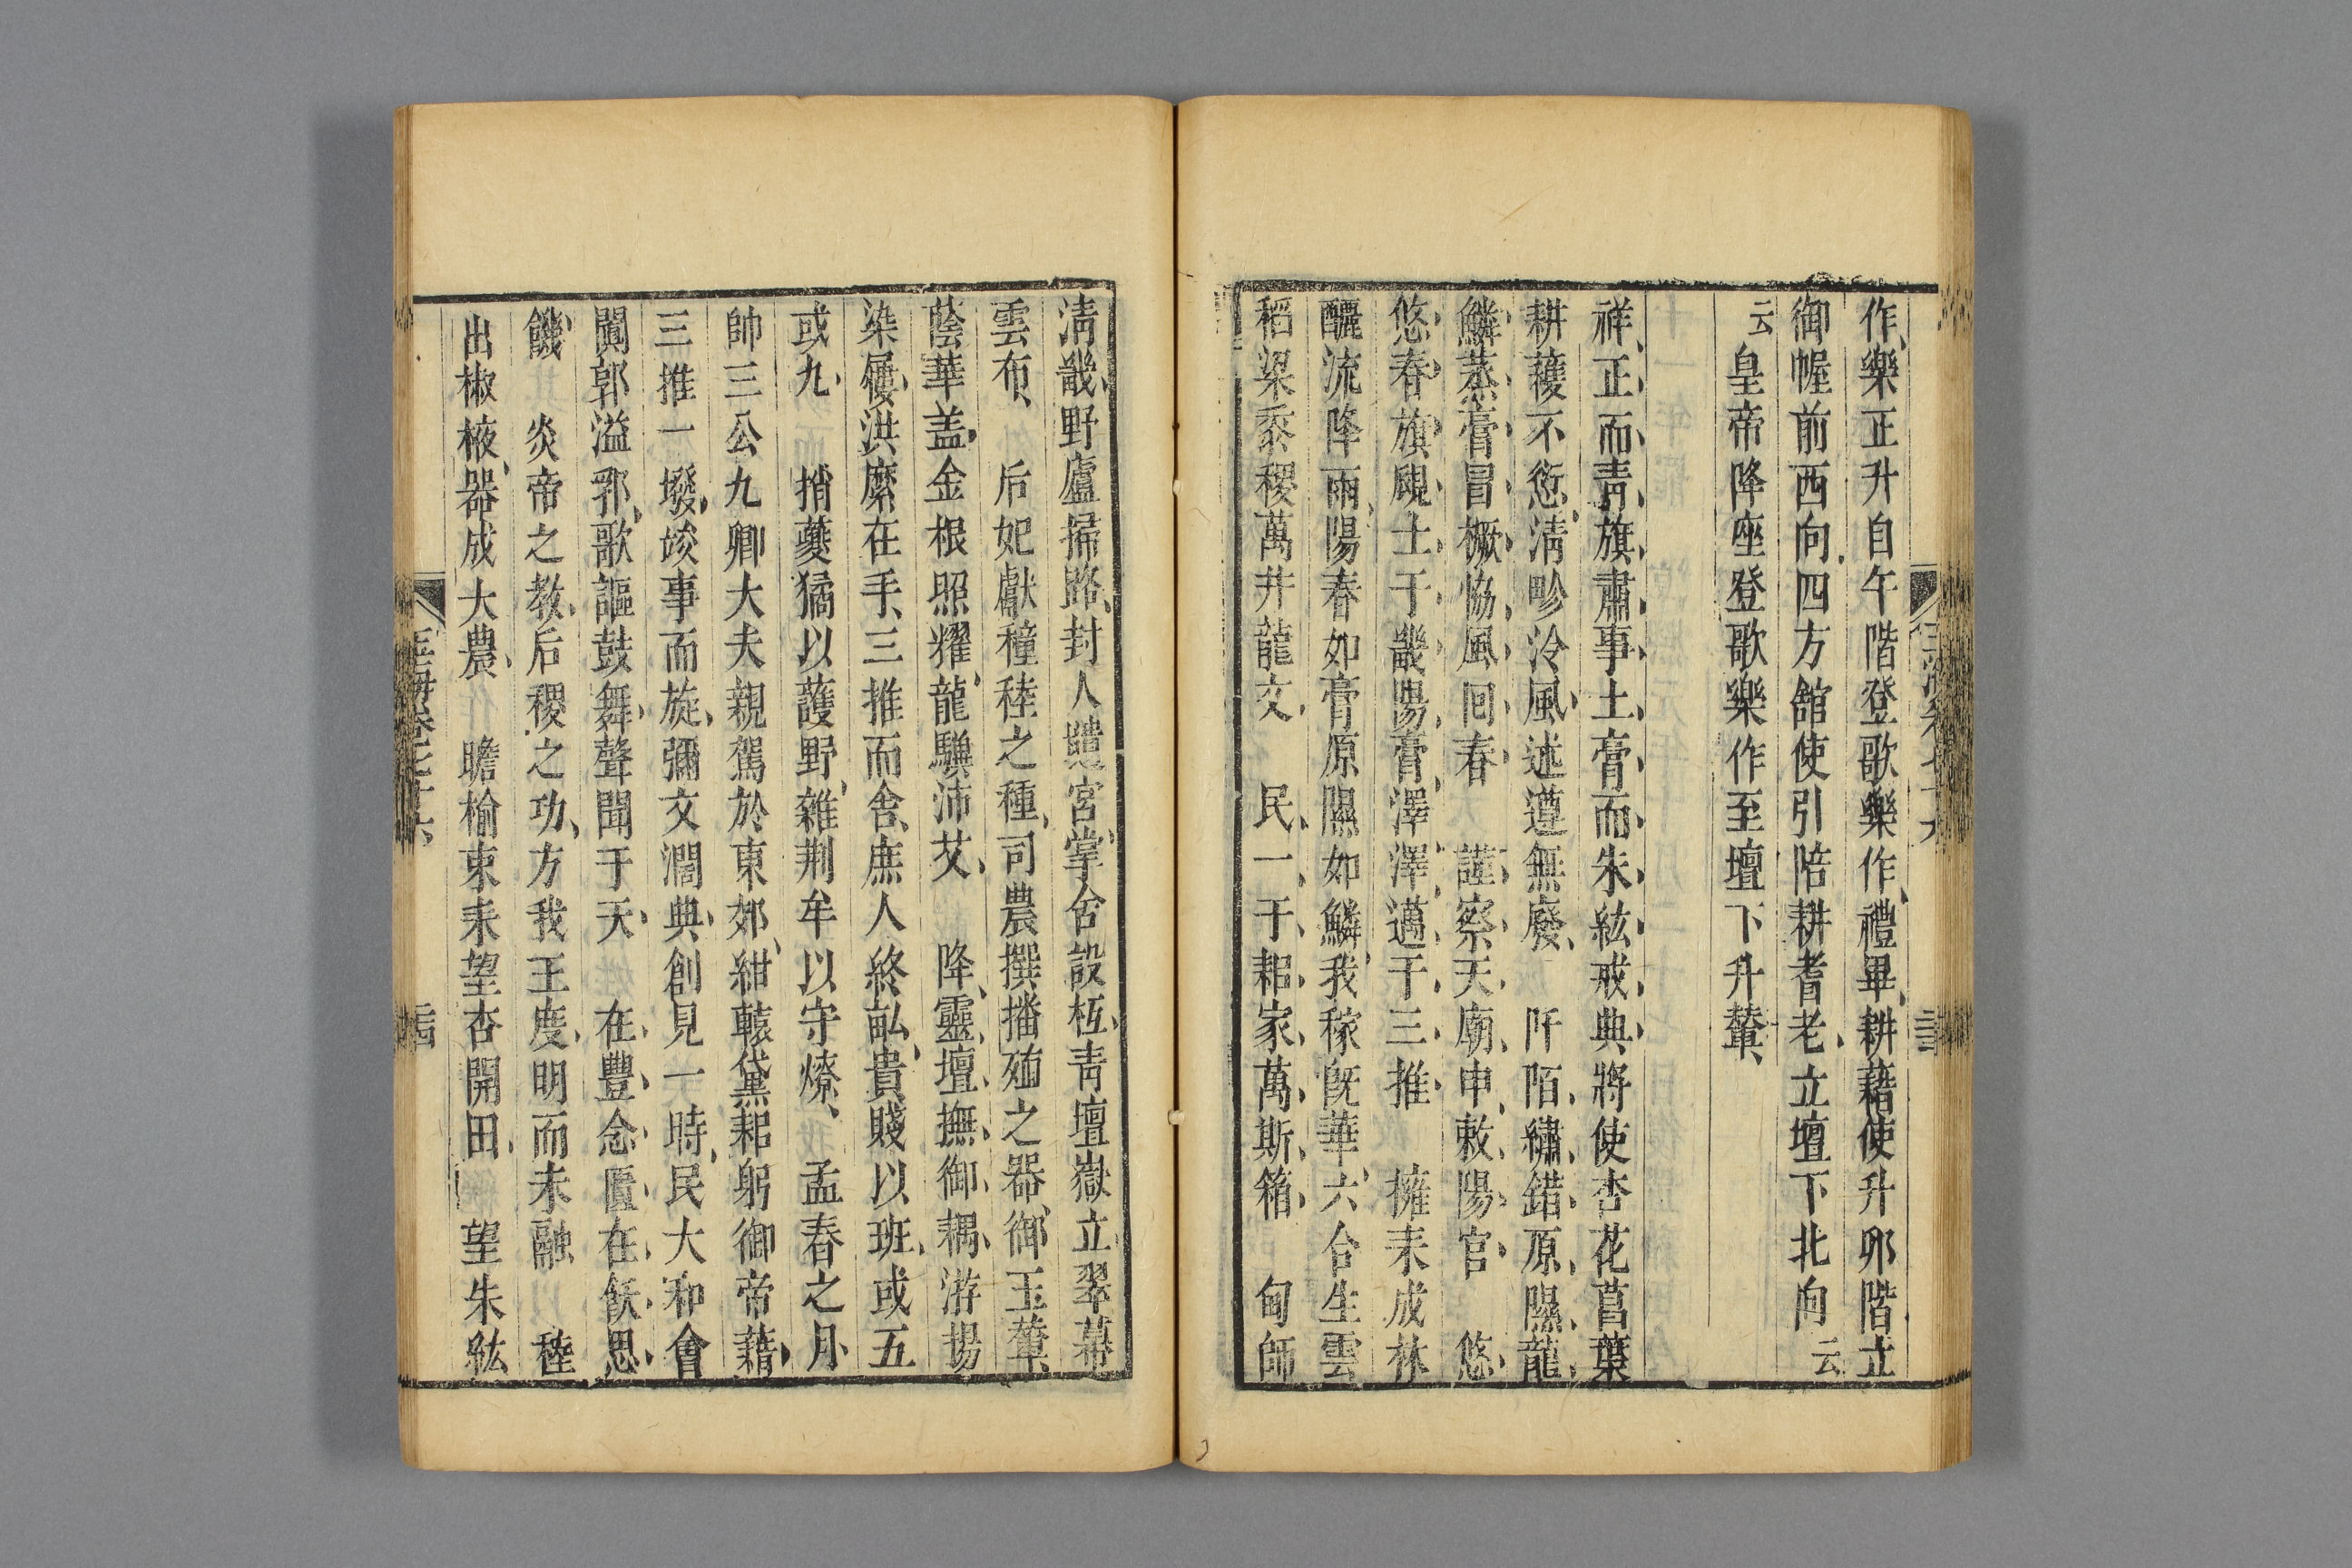 作樂正升自午階登歌樂作禮畢耕藉使升卯階立
御幄前西向四方館使引陪耕耆老立壇下北向云
云皇帝降座登歌樂作至壇下升輦
祥正而青旗肅事土膏而朱紘戒典將使杏花菖葉
耕穫不愆淸畛泠風述遵無廢 阡陌繡錯原隰龍
鱗蒸膏冒橛協風囘春 謹察天廟申敕陽官 悠
悠春旗颭士千畿陽膏澤澤邁千三推 擁耒成林
釃流降雨陽春如膏原隰如鱗我稼旣華六合生雲
稻粱黍稷萬井龍交 民一千耜家萬斯箱 甸師
淸畿野廬掃路封人壝宮掌舍設枑靑壇嶽立翠幕
雲布 后妃獻穜稑之種司農撰播殖之器御玉輦
蔭華盖金根照耀龍驥沛艾 降靈壇撫御耦游揚
染屨洪縻在手三推而舍庶人終畝貴賤以班或五
或九 捎夔獝以護野雜荆牟以守燎 孟春之月
帥三公九卿大夫親駕於東郊紺轅黛耜躬御帝藉
三推一墢竣事而旋彌文濶典創見一時民大和會
闐郭溢郛歌謳鼓舞聲聞于天 在豐念匱在飫思
饑 炎帝之教后稷之功方我王度明而未融 稑
出椒掖器成大農 瞻榆束耒望杏開田 望朱紘
玉海卷七十六 三四